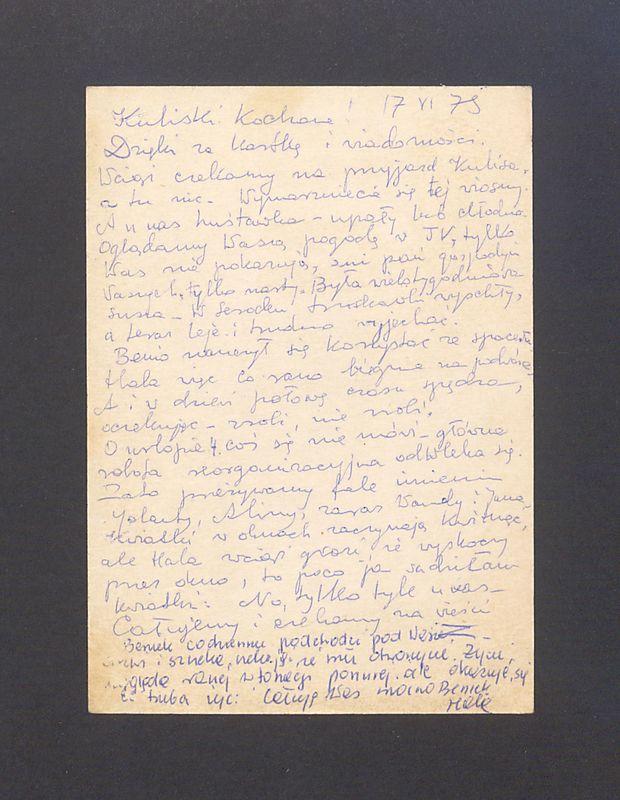 Kuliski Kochane! 17 VI 79
Dzięki za kartkę i wiadomości.
Wciąż czekamy na przyjazd Kulisa,
a tu nic. Wymarzniecie się tej wiosny.
A u nas huśtawka – upały lub chłodno.
Oglądamy Waszą pogodę w TV, tylko
Was nie pokazują, ani pań gospodyń
Waszych, tylko nasty. Była wielotygodniowa
susza – w Serocku truskawki wyschły,
a teraz leje i trudno wyjechać.
Benio nauczył się korzystać ze spaceru
Hala więc co rano biegnie na podwórze
A i w dzień połowę czasu spędza,
oczekując – zrobi, nie zrobi.
O urlopie coś się nie mówi – główna
robota reorganizacyjna odwleka się.
Za to przeżywamy falę imienin
Jolanty, Aliny, zaraz Wandy i Jana,
Kwiatki w oknach zaczynają kwitnąć,
ale Hala wciąż grozi że wyskoczy
przez okno, to poco ja sadziłam
kwiatki? No, tylko tyle u nas –
Całujemy i czekamy na wieści
Beniek codziennie podchodzi pod Wasze
i szuka, że mu otworzycie. Życie
ponurej ale okazuje się
że trzeba żyć! Całuję Was mocno Beniek
Hala